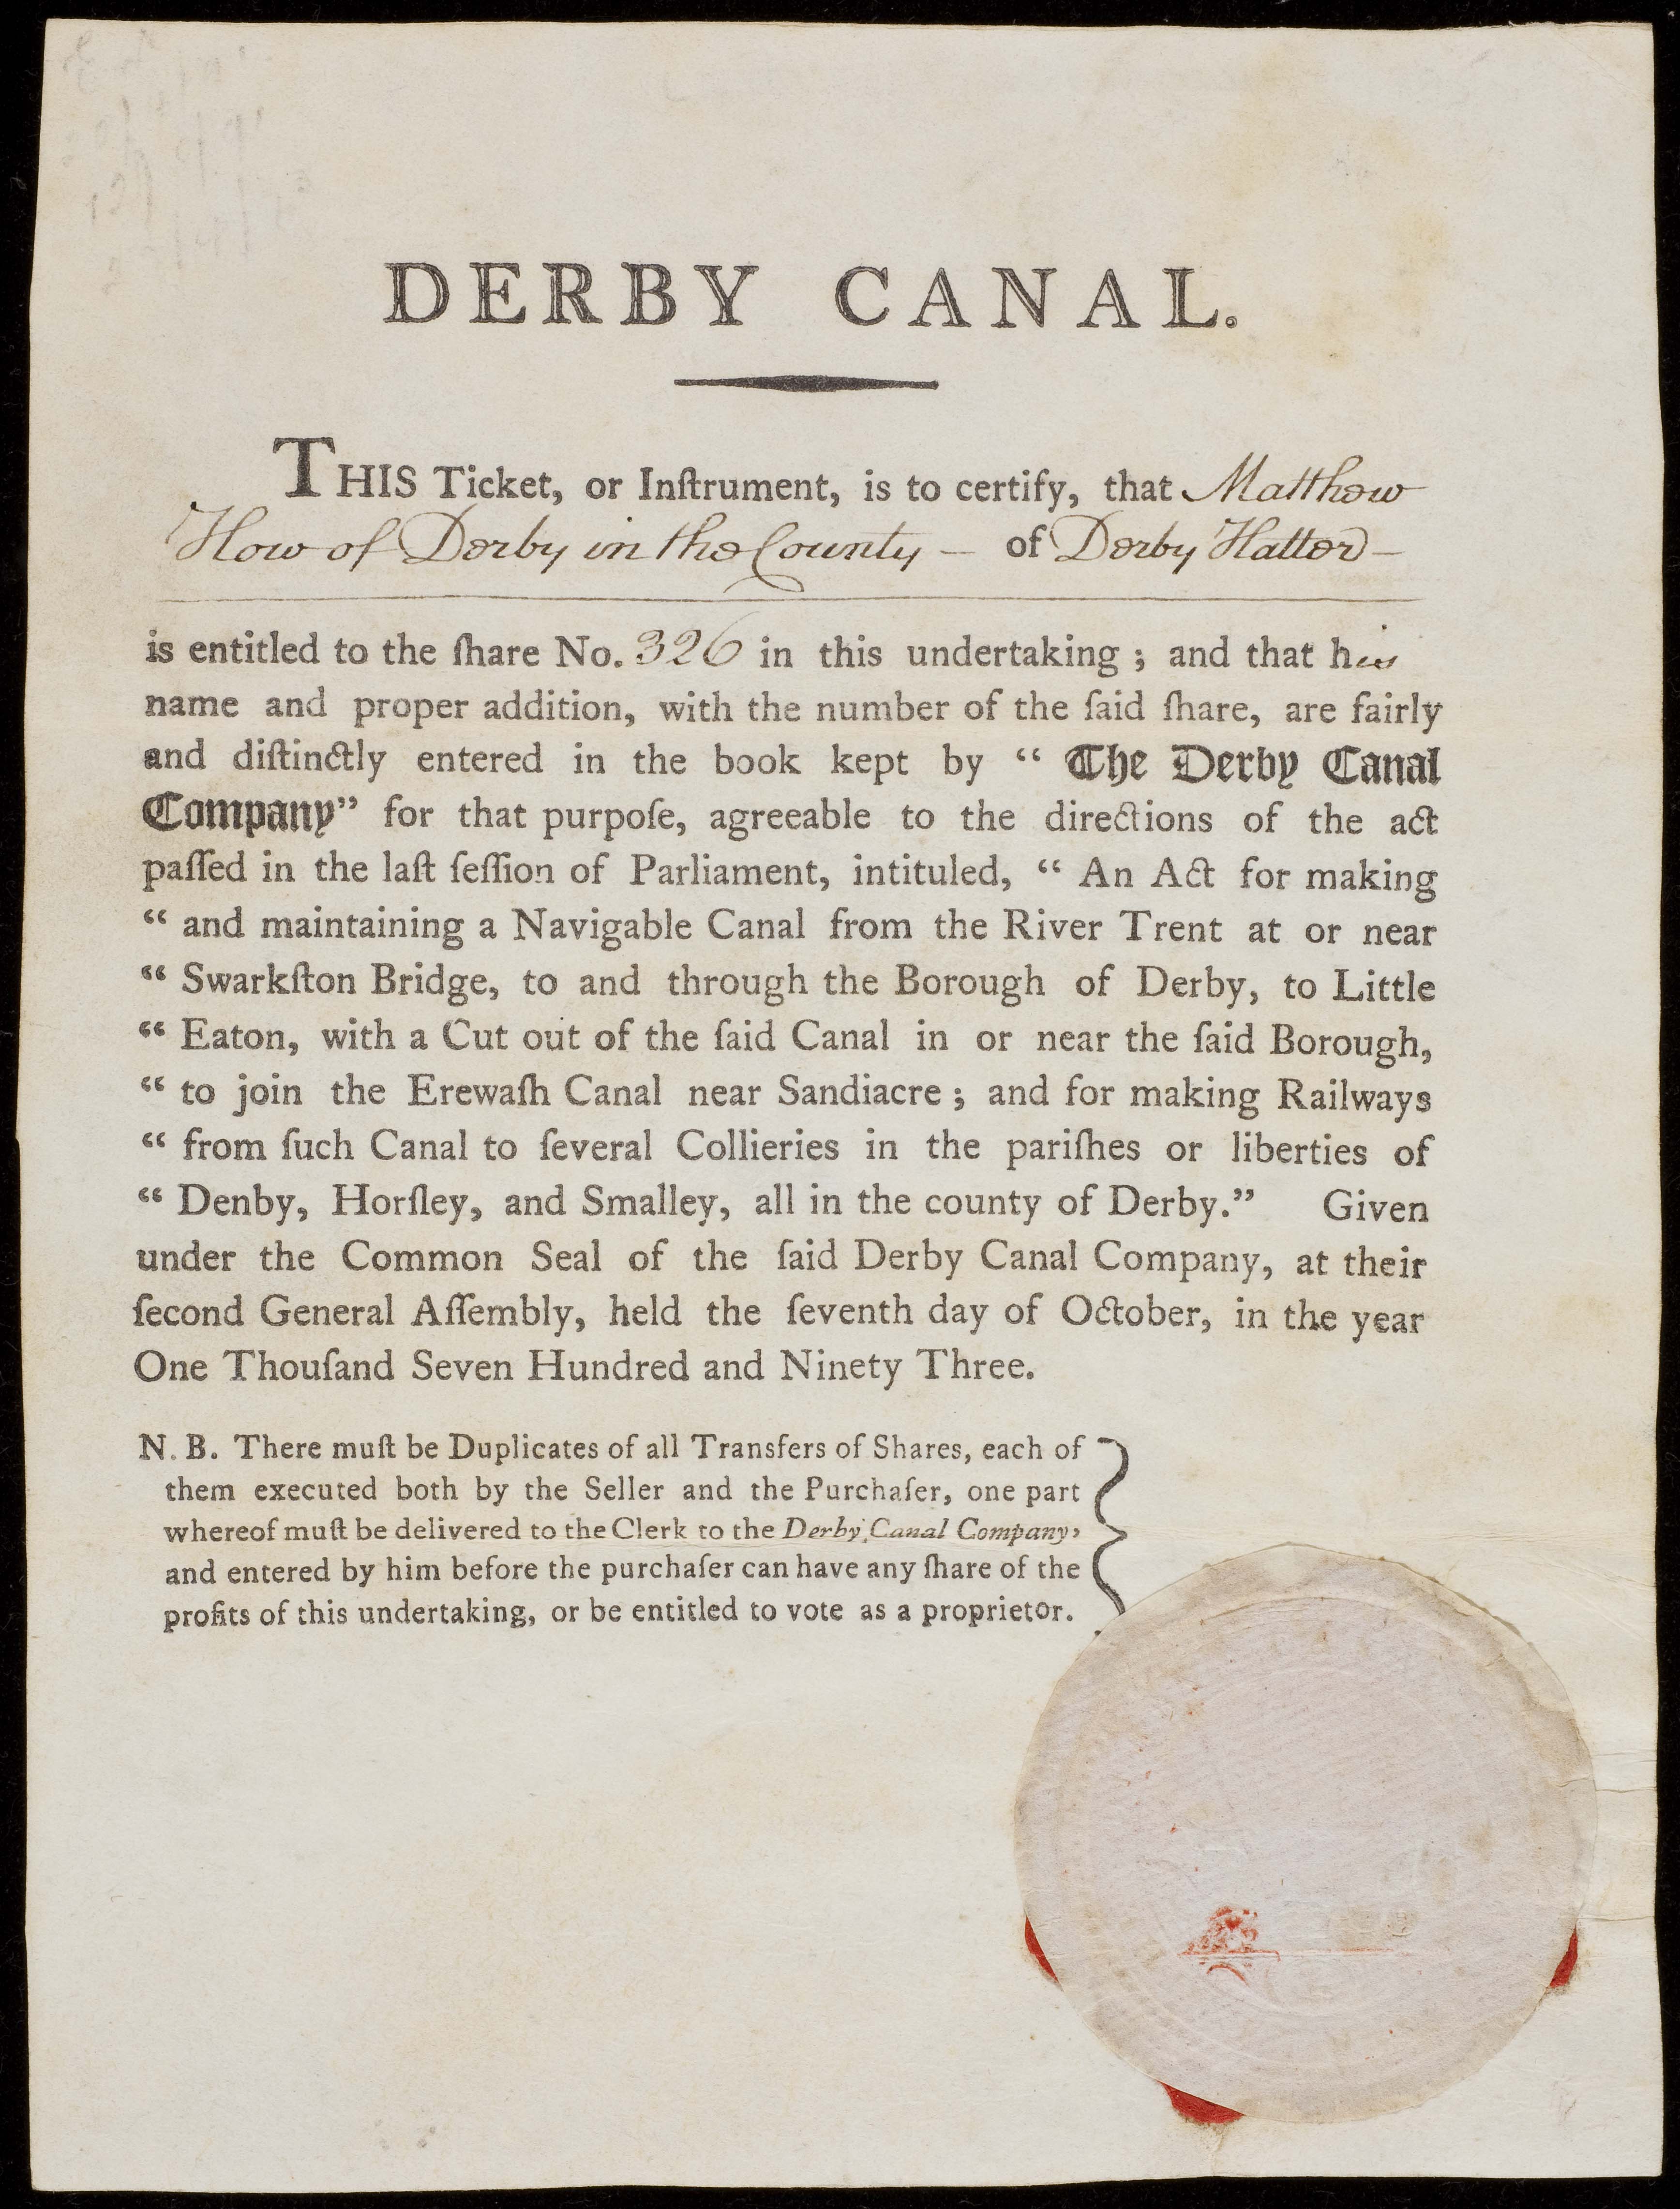 DERBY CANAL.
THIS Ticket, or Inſtrument, is to certify, that Matthew
How of Derby in the County — of Derby Hatter —
is entitled to the ſhare No. 326 in this undertaking ; and that his
name and proper addition, with the number of the ſaid ſhare, are fairly
and diſtinctly entered in the book kept by “ The Derby Canal
Company” for that purpoſe, agreeable to the directions of the act
paſſed in the laſt ſeſſion of Parliament, intituled, “ An Act for making
“ and maintaining a Navigable Canal from the River Trent at or near
“ Swarkſton Bridge, to and through the Borough of Derby, to Little
“ Eaton, with a Cut out of the ſaid Canal in or near the ſaid Borough,
“ to join the Erewaſh Canal near Sandiacre ; and for making Railways
“ from ſuch Canal to ſeveral Collieries in the pariſhes or liberties of
“ Denby, Horſley, and Smalley, all in the county of Derby.” Given
under the Common Seal of the ſaid Derby Canal Company, at their
ſecond General Aſſembly, held the ſeventh day of October, in the year
One Thouſand Seven Hundred and Ninety Three.
N. B. There muſt be Duplicates of all Transfers of Shares, each of
them executed both by the Seller and the Purchaſer, one part
whereof muſt be delivered to the Clerk to the Derby Canal Company,
and entered by him before the purchaſer can have any ſhare of the
profits of this undertaking, or be entitled to vote as a proprietor.